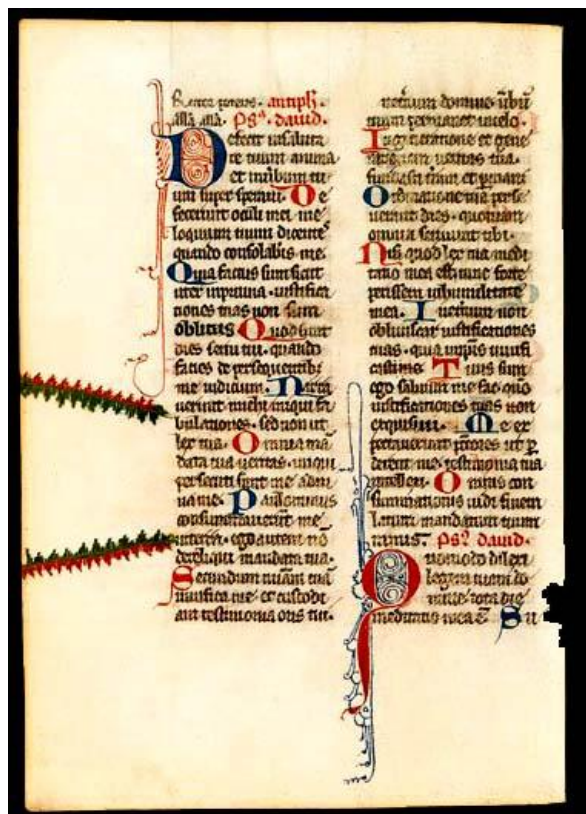 antiph.
ps. dauid.
Defecit in saluta
re tuum anima
et in uerbum tu
um super speraui. De
fecerunt oculi mei in e
loquium tuum dicentes
quando consolabis me.
Quia factus sum sicut
uter in pruina. iustifica
tiones tuas non sum
oblitus Quot sunt
dies serui tui. quando
facies de persequentib
me iudicium. Narra
uerunt michi iniqui fa
bulationes. sed non ut
lex tua. Omnia man
data tua ueritas. iniqui
persecuti sunt me adiu
ua me. Paulominus
consumauerunt me
in terra. ego autem no
dereliqui mandata tua.
Secundum miam tua
uiuifica me. et custodi
am testimonia oris tui.
In eternum domine uerbu
tuum permanet in celo.
In generatione et gene
rationem ueritas tua.
fundasti terram et permanet
Ordinatione tua perse
uerat dies. quoniam
omnia seruiunt tibi.
Nisi quod lex tua medi
tatio mea est tunc forte
perissem in humilitate
mea. In eternum non
obliuiscar iustificationes
tuas. quia in ipsis uiuifi
casti me. Tuus sum
ego saluum me fac. quo
iustificationes tuas non
exquisiui. Me ex
pectauerunt peccatores ut p
derent me. testimonia tua
intellexi. Omnis con
summationis uidi finem
latum mandatum tuum
nimis. ps. dauid.
Quomodo dilexi
legem tuam do
mine. tota die
meditatio mea e. Su